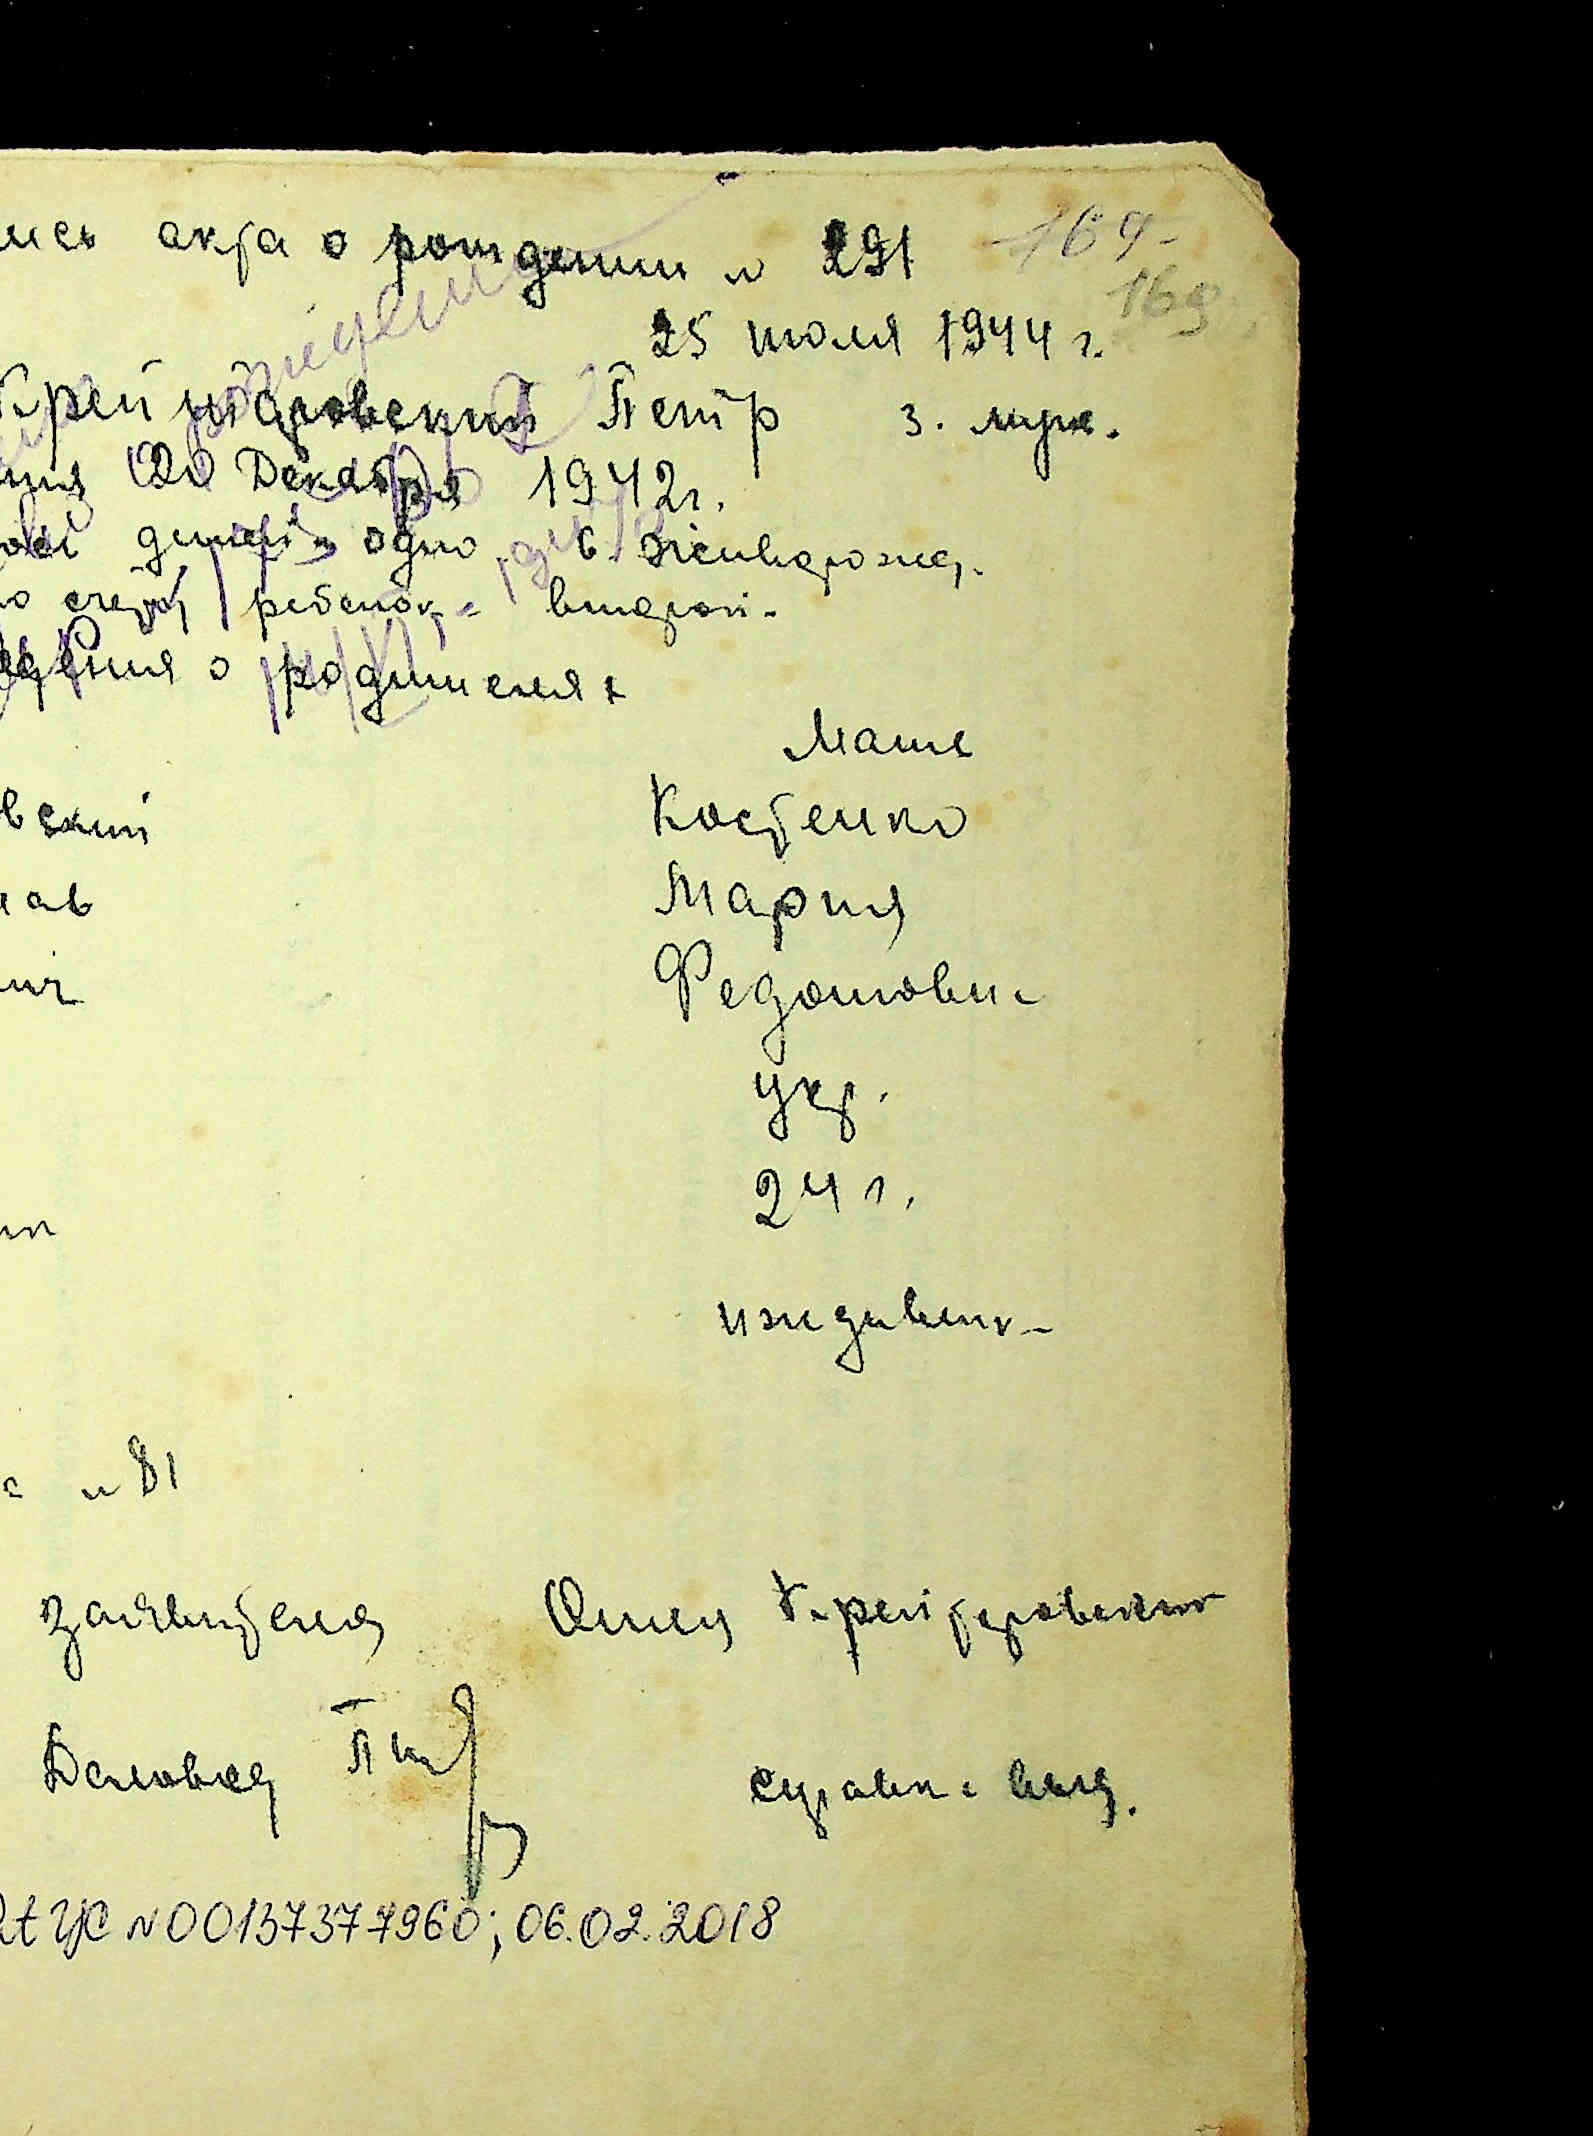 ись акта о рождении № 291
169
25 июля 1944 г.
169
Крейтеровский Петр 3. муж.
ния 20 Декабря 1942г.
детей - одно 6. Живорожд.
о счету ребенок - второй -
едения о родителях
Мать
вский Костенко
лав Мария
ич Федотовн
укр.
24 г.
иждивен -
№ 81
заявителя Отец Крейтеровский
Деловод справк выд.
УС №00137377960; 06.02.2018